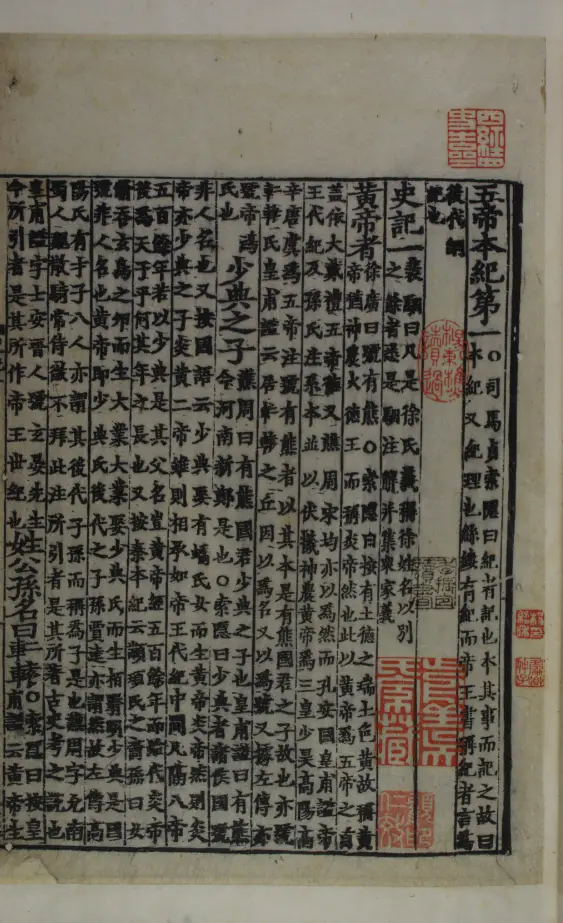 五帝本紀第一
○司馬貞索隱曰紀者記也本其事而記之故曰
本紀又紀理也絲縷有紀而帝王書稱紀者言爲
後代綱
紀也
史記一
裴駰曰凡是徐氏義稱徐姓名以別
之餘者悉是駰注解并集衆家義
黃帝者
徐廣曰號有熊○索隱曰按有土德之瑞土色黃故稱黃
帝猶神農火德王而稱炎帝然也此以黃帝爲五帝之首
蓋依大戴禮五帝德又譙周宋均亦以爲然而孔安國皇甫謐帝
王代紀及孫氏注系本並以伏犧神農黃帝爲三皇少昊高陽高
辛唐虞爲五帝注號有熊者以其本是有熊國君之子故也亦號
軒轅氏皇甫謐云居軒轅之丘因以爲名又以爲號又據左傳亦
號帝鴻
氏也
少典之子
譙周曰有熊國君少典之子也皇甫謐曰有熊
今河南新鄭是也○索隱曰少典者諸侯國號
非人名也又按國語云少典娶有蟜氏女而生黃帝炎帝然則炎
帝亦少典之子炎黃二帝雖則相承如帝王代紀中閒凡隔八帝
五百餘年若以少典是其父名豈黃帝經五百餘年而始代炎帝
後爲天子乎何其年之長也又按秦本紀云顓頊氏之裔孫曰女
脩吞玄鳥之卵而生大業大業娶少典氏而生柏翳明少典是國
號非人名也黃帝即少典氏後代之子孫賈逵亦謂然故左傳高
陽氏有才子八人亦謂其後代子孫而稱爲子是也譙周字允南
蜀人魏散騎常侍徵不拜此注所引者是其所著古史考之說也
皇甫謐字士安晉人號玄晏先生
今所引者是其所作帝王世紀也
姓公孫名曰軒轅
○索隱曰按皇
甫謐云黃帝生
四經四史之齋
楊東樵讀過